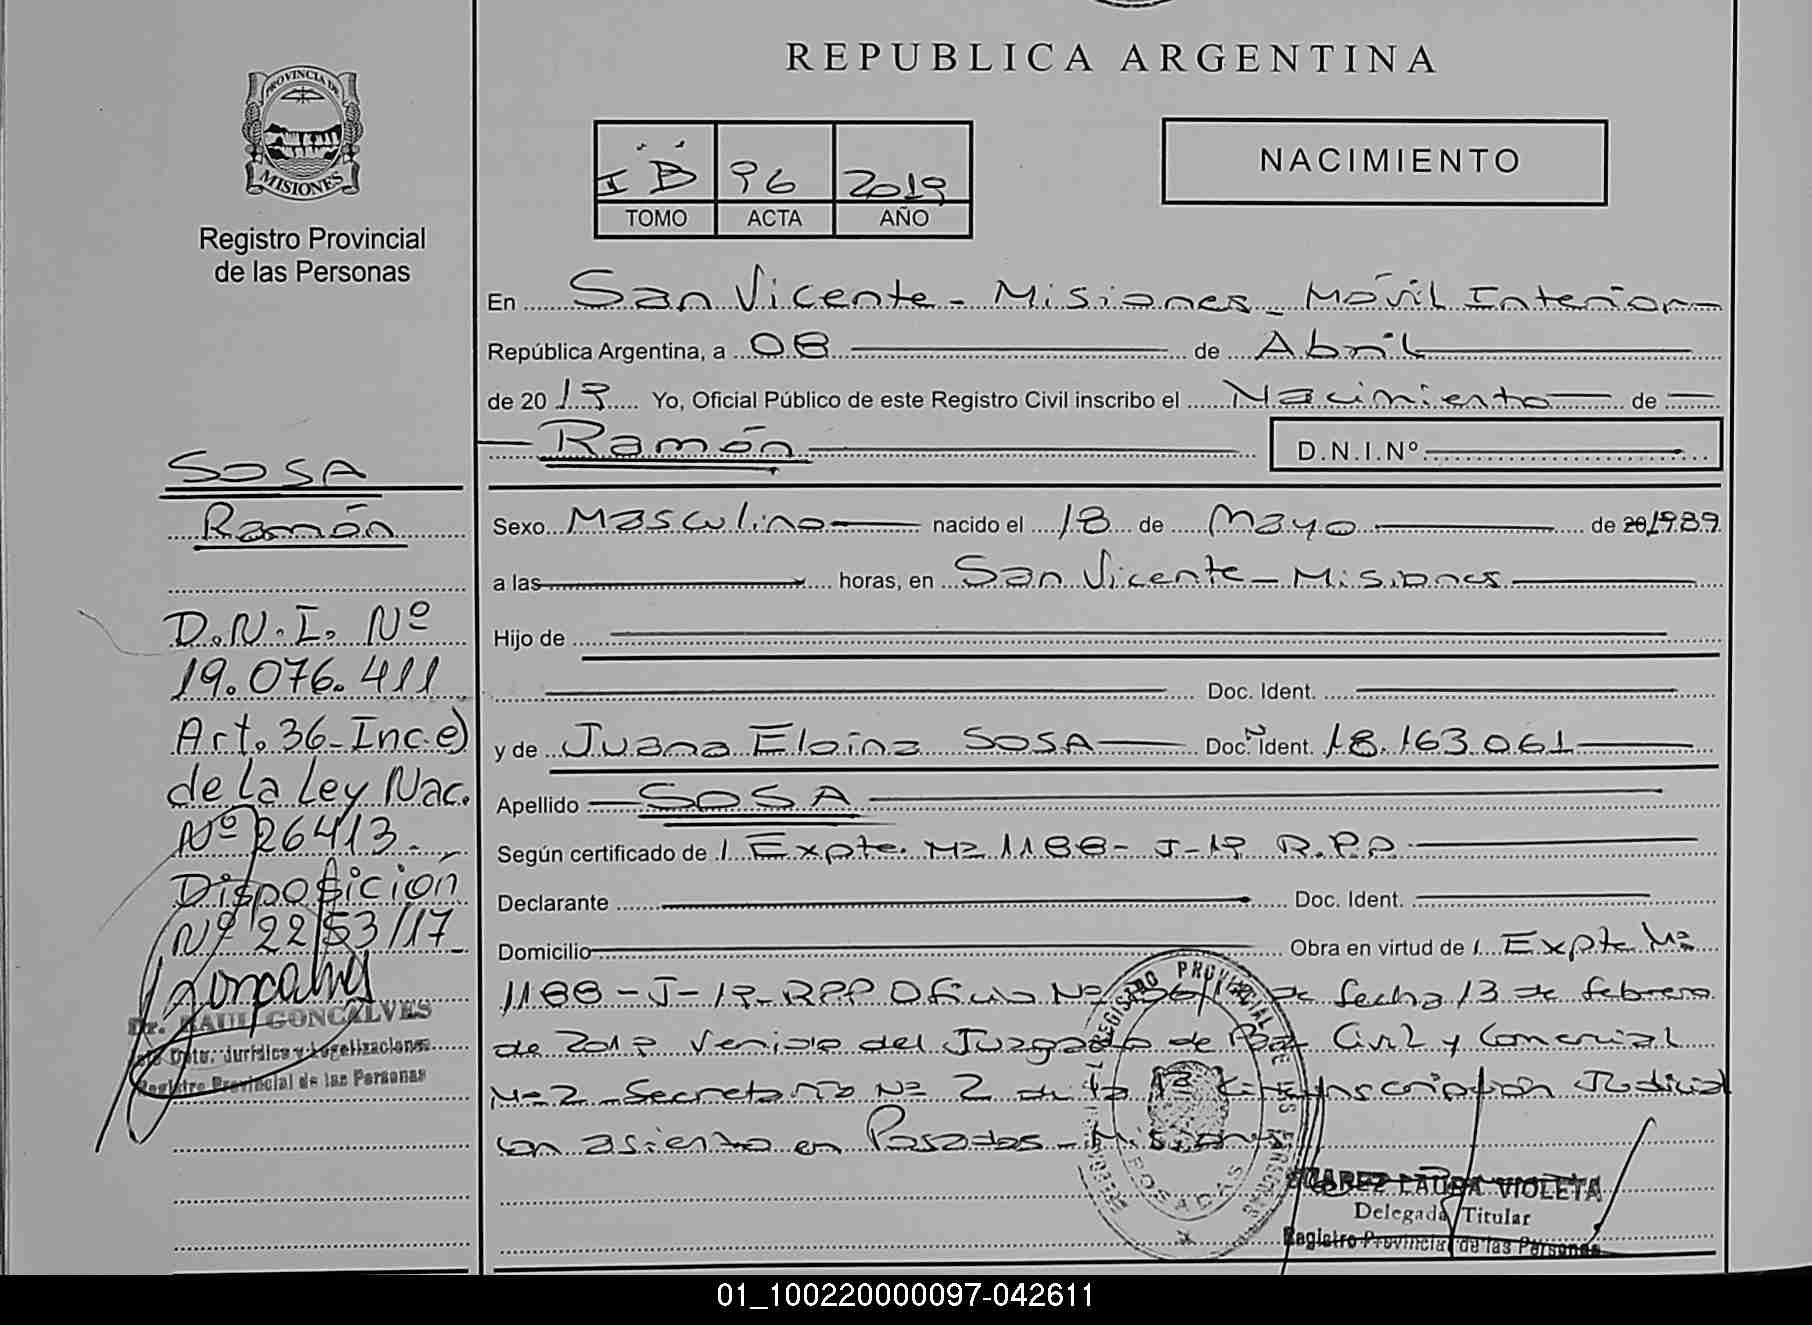 REPUBLICA ARGENTINA
PROVINCIA DE
MISIONES
Registro Provincial
de las Personas
I B 96 2019
TOMO ACTA AÑO
NACIMIENTO
En San Vicente - Misiones - Móvil Interior
República Argentina, a 08 de Abril
de 20 19 Yo, Oficial Público de este Registro Civil inscribo el Nacimiento de
Ramón D.N.I.Nº
Sexo Masculino nacido el 18 de Mayo de 20 1989
a las horas, en San Vicente - Misiones
Hijo de
Doc. Ident.
y de Juana Eloina SOSA Doc. Ident. 18.163.061
Apellido SOSA
Según certificado de Expte. Nº 1188 - J - 19 R.P.P.
Declarante Doc. Ident.
Domicilio Obra en virtud de Expte Nº
1188 - J - 19 - RPP Oficio Nº de fecha 13 de febrero
de 2019 venido del Juzgado de Paz Civil y Comercial
Nº 2 - Secretaría Nº 2 de la 1ª Circunscripción Judicial
con asiento en Posadas - Misiones
REGISTRO PROVINCIAL DE LAS PERSONAS
POSADAS
SUAREZ LAURA VIOLETA
Delegada Titular
Registro Provincial de las Personas
SOSA
Ramón
D.N.I. Nº
19.076.411
Art. 36 - Inc e)
de la Ley Nac.
Nº 26413.
Disposición
Nº 2253/17
Dr. RAUL GONCALVES
Dpto. Jurídico y Legalizaciones
Registro Provincial de las Personas
01_100220000097-042611